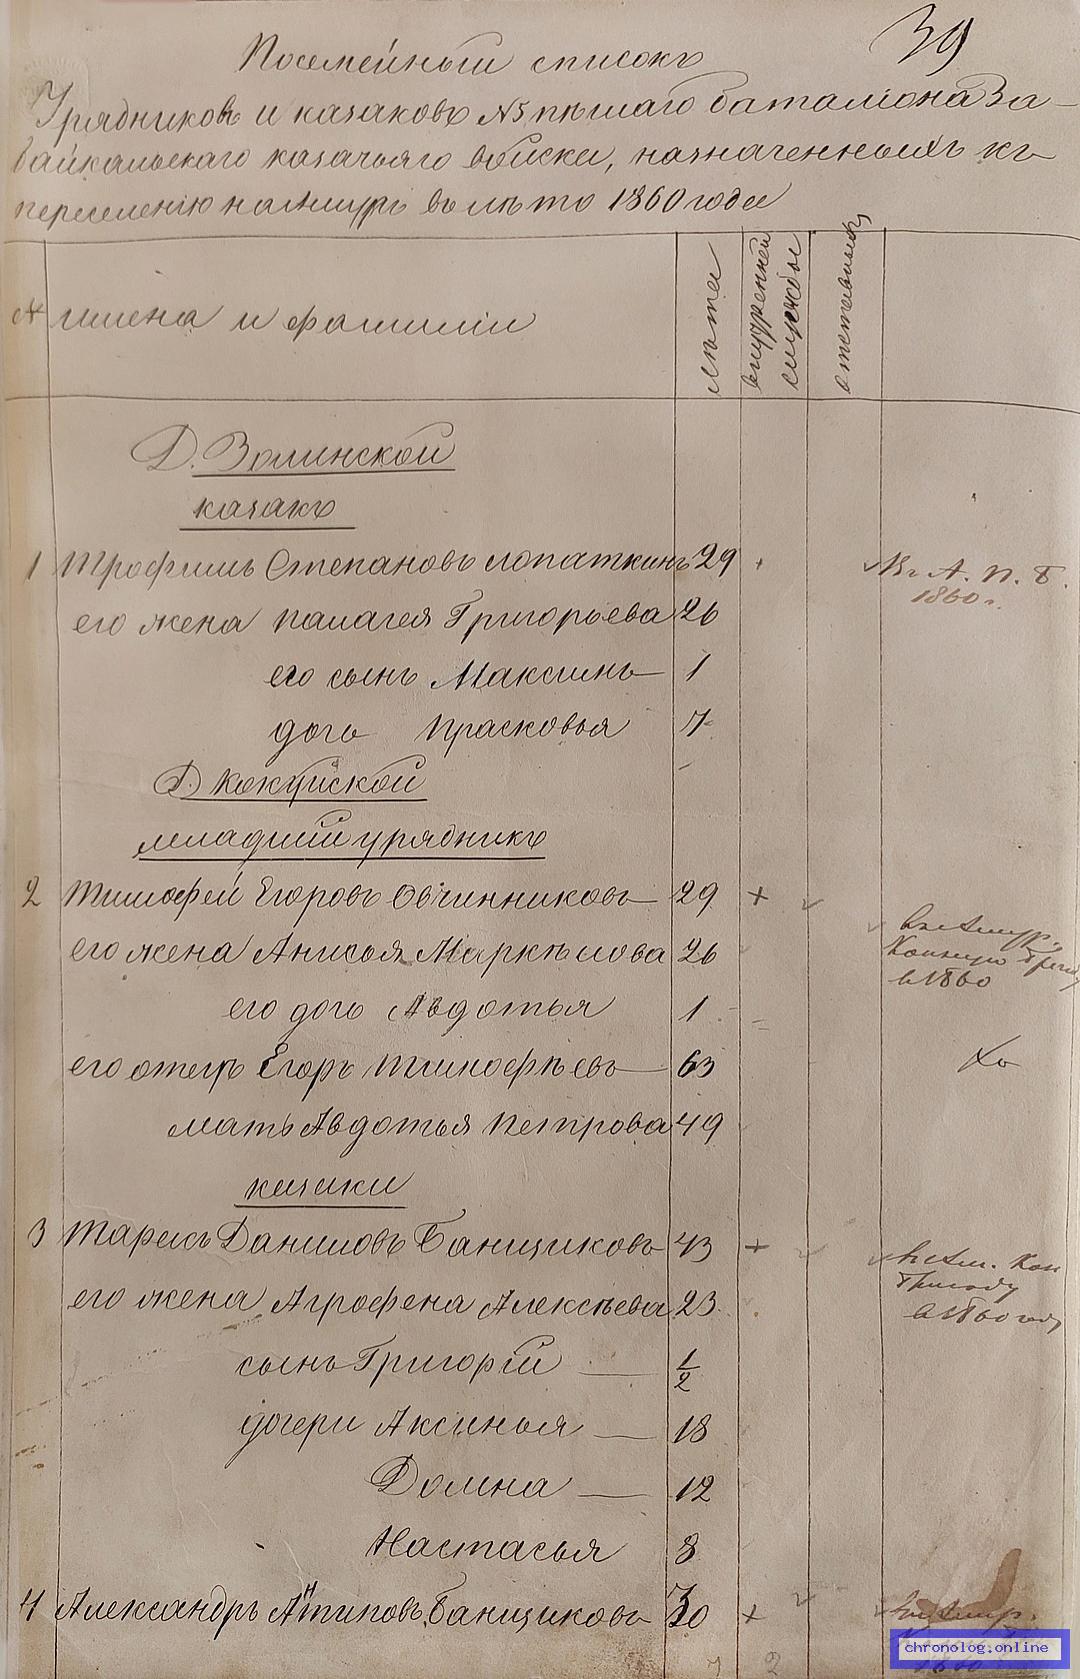 39
Посемейный списокъ
Урядниковъ и казаковъ №5 пѣшаго баталіона За-
байкальскаго казачьяго войска, назначенныхъ къ
переселенію на Амуръ въ лѣто 1860 года
№ имена и фамиліи
лѣта
внутренней службы
отставныхъ
Д. Золинской
казакъ
1 Трофимъ Степановъ Лопаткинъ 29
В. А. П. Б.
1860 г.
его жена Палагея Григорьева 26
его сынъ Максимъ 1
дочь Прасковья 7
Д. Кокуйской
младший урядникъ
2 Тимофей Егоровъ Овчинниковъ 29 +
въ Амур.
Конную Бригад
в 1860
его жена Анисья Маркѣлова 26
его дочь Авдотья 1
его отецъ Егоръ Тимофѣевъ 63
мать Авдотья Петрова 49
казаки
3 Тарасъ Даниловъ Банщиковъ 43 +
въ Ам. Кон
Бригаду
в 1860 году
его жена Агрофена Алексѣева 23
сынъ Григорій 1/2
дочери Аксинья 18
Домна 12
Настасья 8
4 Александръ Антиповъ Банщиковъ 30 +
въ Амур.
chronolog.online